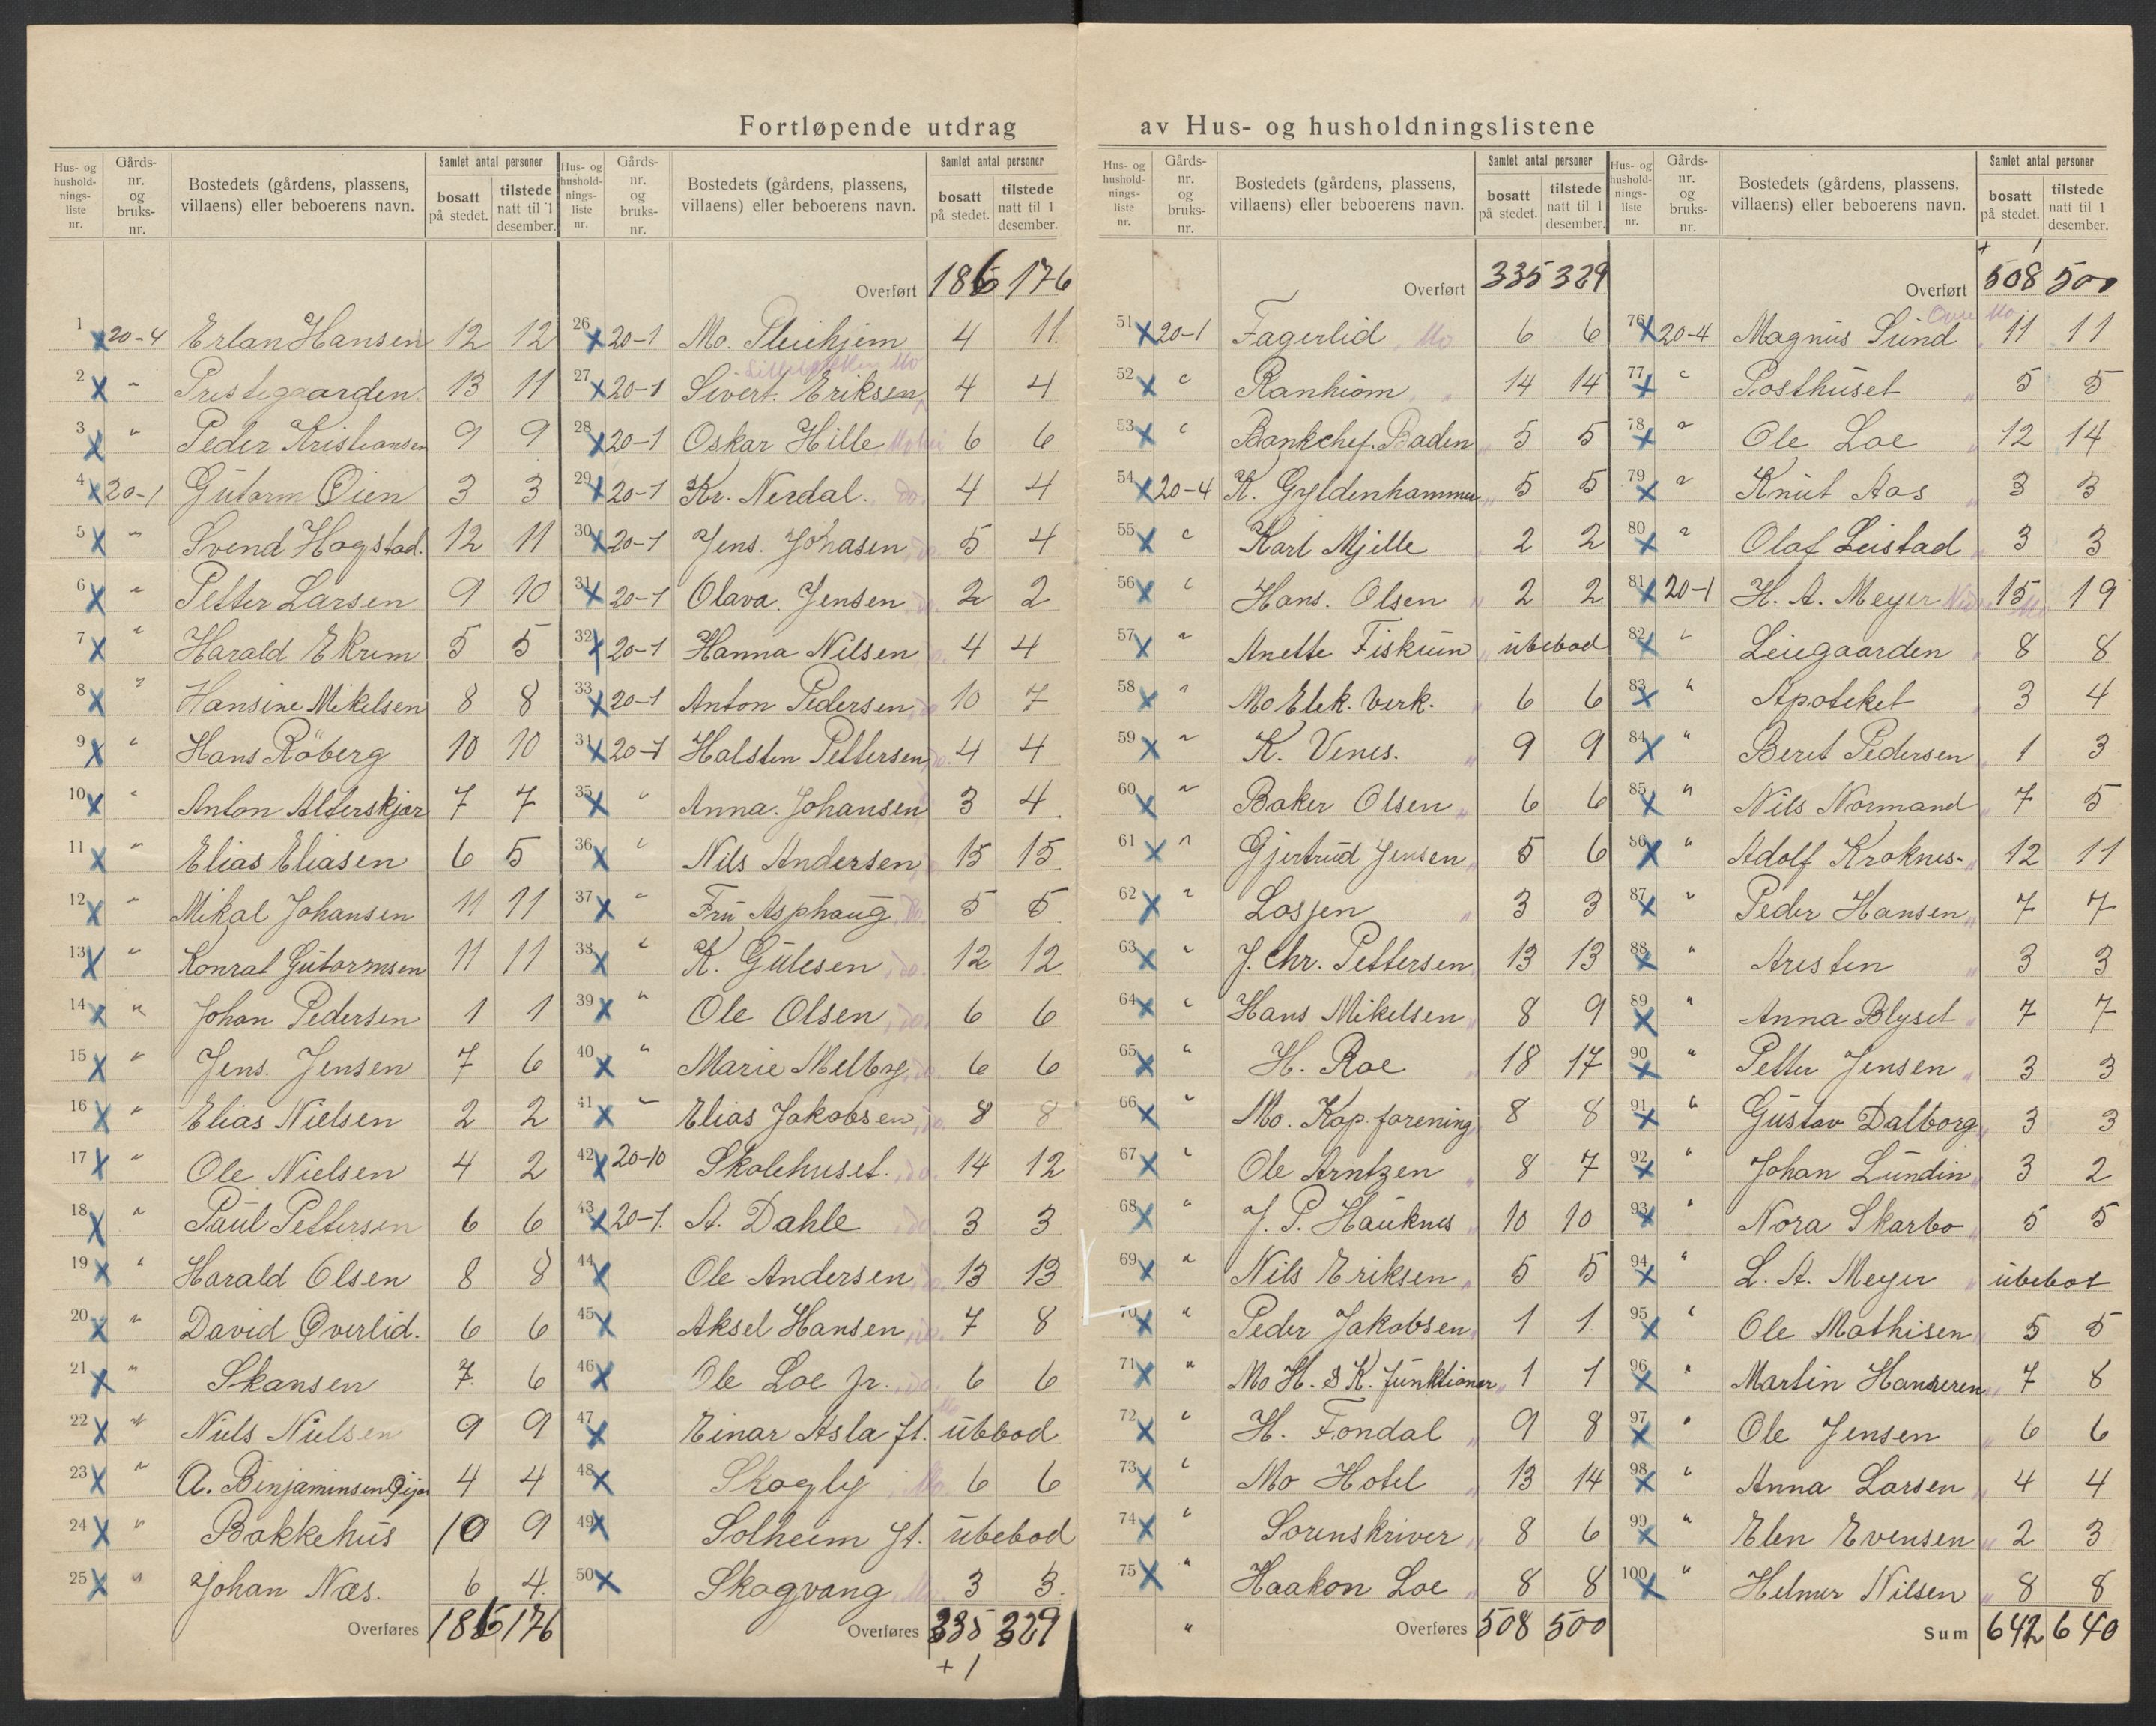 Fortløpende utdrag av Hus- og husholdningslistene
Hus- og hushold-nings-liste nr. Gårds-nr. og bruks-nr. Bostedets (gårdens, plassens, villaens) eller beboerens navn. Samlet antal personer bosatt på stedet. tilstede natt til 1 desember.
1 20-4 Erlan Hansen 12 12
2 " Prestegaarden 13 11
3 " Peder Kristiansen 9 9
4 20-1 Gutorm Øien 3 3
5 " Svend Hagstad. 12 11
6 " Petter Larsen 9 10
7 " Harald Ekrem 5 5
8 " Hansine Mikelsen 8 8
9 " Hans Röberg 10 10
10 " Anton Alterskjær 7 7
11 " Elias Eliasen 6 5
12 " Mikal Johansen 11 11
13 " Konrat Gutormsen 11 11
14 " Johan Pedersen 1 1
15 " Jens. Jensen 7 6
16 " Elias Nielsen 2 2
17 " Ole Nielsen 4 2
18 " Paul Pettersen 6 6
19 " Harald Olsen 8 8
20 " David Øverlid. 6 6
21 " Skansen 7 6
22 " Niels Nielsen 9 9
23 " A. Binjaminsen 4 4
24 " Bakkehus 10 9
25 " Johan Næs. 6 4.
Overføres 185 176
Hus- og hushold-nings-liste nr. Gårds-nr. og bruks-nr. Bostedets (gårdens, plassens, villaens) eller beboerens navn. Samlet antal personer bosatt på stedet. tilstede natt til 1 desember.
Overført 186 176
26 20-1 Mo. Pleiehjem 4 11.
27 20-1 Sivert. Eriksen 4 4
28 20-1 Oskar Hille 6 6
29 20-1 Kr. Nerdal. do. 4 4
30 20-1 Jens. Johasen do. 5 4
31 20-1 Olava. Jensen do. 2 2
32 20-1 Hanna Nilsen do. 4 4
33 20-1 Anton Pedersen do 10 7
34 20-1 Halsten Pettersen do. 4 4
35 " Anna. Johansen 3 4
36 " Nils Andersen 15 15
37 " Fru Asphaug do. 5 5
38 " K. Gulesen do. 12 12
39 " Ole Olsen do. 6 6
40 " Marie Melby do. 6 6
41 " Elias Jakobsen do. 8 8
42 20-10 Skolehuset. do. 14 12
43 20-1. A. Dahle do 3 3
44 Ole Andersen do. 13 13
45 Aksel Hansen do. 7 8
46 Ole Loe jr. do. 6 6
47 Einar Asla ft. ubbod
48 Skogly Mo. 6 6
49 Solheim ft. ubebod
50 Skogvang Mo 3 3.
Overføres 335 329
+1
Hus- og hushold-nings-liste nr. Gårds-nr. og bruks-nr. Bostedets (gårdens, plassens, villaens) eller beboerens navn. Samlet antal personer bosatt på stedet. tilstede natt til 1 desember.
Overført 335 329
51 20-1 Fagerlid Mo 6 6
52 " Ranhiom " 14 14
53 " Bankchef. Baden " 5 5
54 20-4 K. Gyldenhammer " 5 5
55 " Karl Mjelle 2 2
56 " Hans. Olsen " 2 2
57 " Anette Fiskum " ubebod
58 " Mo Elek. Verk. " 6 6
59 " K. Venes. " 9 9
60 " Baker Olsen " 6 6
61 " Gjertrud Jensen " 5 6
62 " Losjen " 3 3
63 " J. Chr. Pettersen " 13 13
64 " Hans Mikelsen " 8 9
65 " H. Roe " 18 17
66 " Mo. Kop. forening 8 8
67 " Ole Arntzen " 8 7
68 " J. P. Hauknes " 10 10
69 " Nils Eriksen " 5 5
70 " Peder Jakobsen " 1 1.
71 " Mo H. & K. funktionær " 1 1
72 " H. Fondal " 9 8
73 " Mo Hotel " 13 14
74 " Sorenskriver " 8 6
75 " Haakon Loe " 8 8
" Overføres 508 500
Hus- og hushold-nings-liste nr. Gårds-nr. og bruks-nr. Bostedets (gårdens, plassens, villaens) eller beboerens navn. Samlet antal personer bosatt på stedet. tilstede natt til 1 desember.
+ 1
Overført 508 500
76 20-4 Magnus Sund 11 11
77 " Posthuset " 5 5
78 " Ole Loe " 12 14
79 " Knut Aas " 3 3
80 " Olaf Leistad " 3 3
81 20-1 H. A. Meyer 15 19
82 " Leiegaarden " 8 8
83 " Apoteket " 3 4
84 " Beret Pedersen " 1 3
85 " Nils Normand " 7 5
86 " Adolf Kroknes- " 12 11
87 " Peder Hansen " 7 7
88 " Aresten " 3 3
89 " Anna Blyset " 7 7
90 " Petter Jensen " 3 3
91 " Gustav Dalborg " 3 3
92 " Johan Lundin " 3 2
93 " Nora Skarbo " 5 5
94 " L. A. Meyer " ubebot
95 " Ole Mathisen " 5 5
96 " Martin Hanseren " 7 8
97 " Ole Jensen " 6 6
98 " Anna Larsen " 4 4
99 " Elen Evensen " 2 3
100 " Helmer Nilsen " 8 8
Sum 642 640